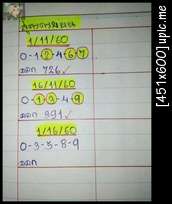 1/11/60
0-1-2-4-6-7
ออก 726 ✓
16/11/60
0-1-3-4-9
ออก 391 ✓
1/12/60
0-3-5-8-9
ออก
[451x600] upic.me